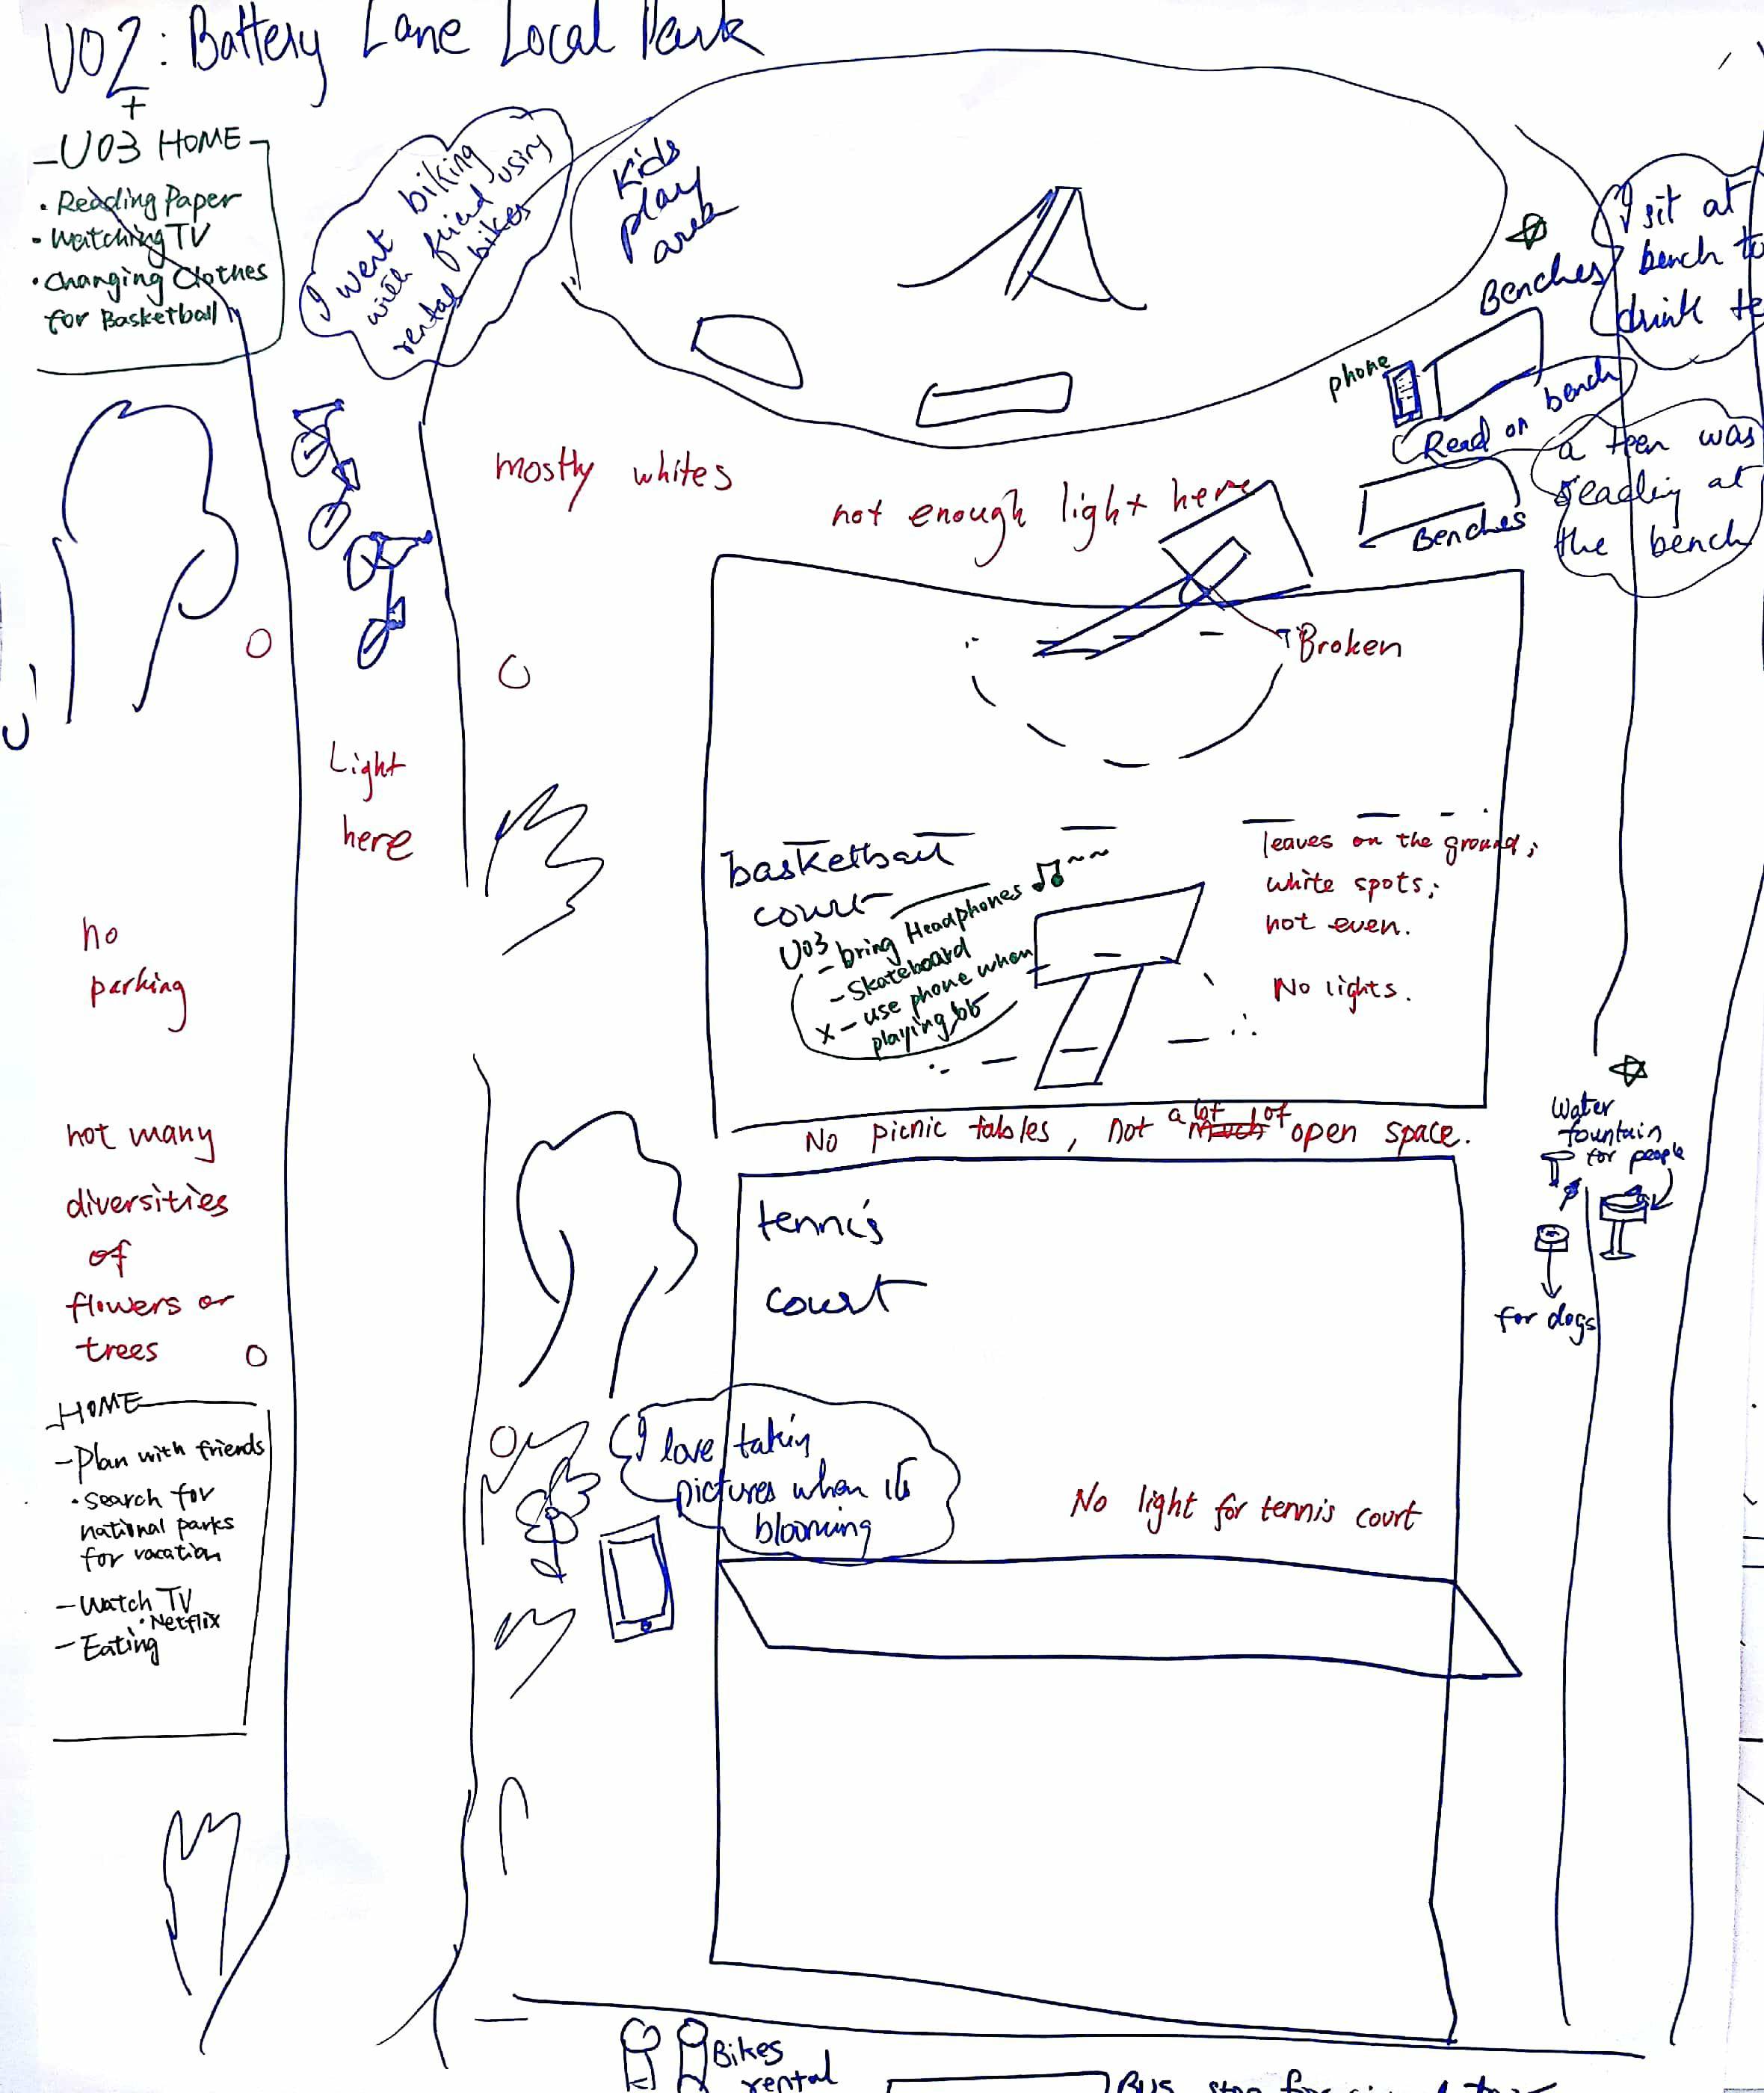 U02: Battery Lane Local Park
+
- U03 HOME
• Reading Paper
• Watching TV
• Changing Clothes
for Basketball
I went biking
with friend using
rental bikes
Kids
play
area
Benches
I sit at
bench to
drink te
phone
Read on bench
a teen was
reading at
the bench
Benches
mostly whites
not enough light here
Broken
Light
here
no
parking
basketball
court
U03 - bring Headphones
- Skateboard
x - use phone when
playing bb
leaves on the ground;
white spots;
not even.
No lights.
No picnic tables, not a lot of open space.
not many
diversities
of
flowers or
trees
Water
fountain
for people
for dogs
tennis
court
HOME
- Plan with friends
• Search for
national parks
for vacation
- Watch TV
• Netflix
- Eating
I love taking
pictures when it
blooming
No light for tennis court
Bikes
rental
Bus stop for